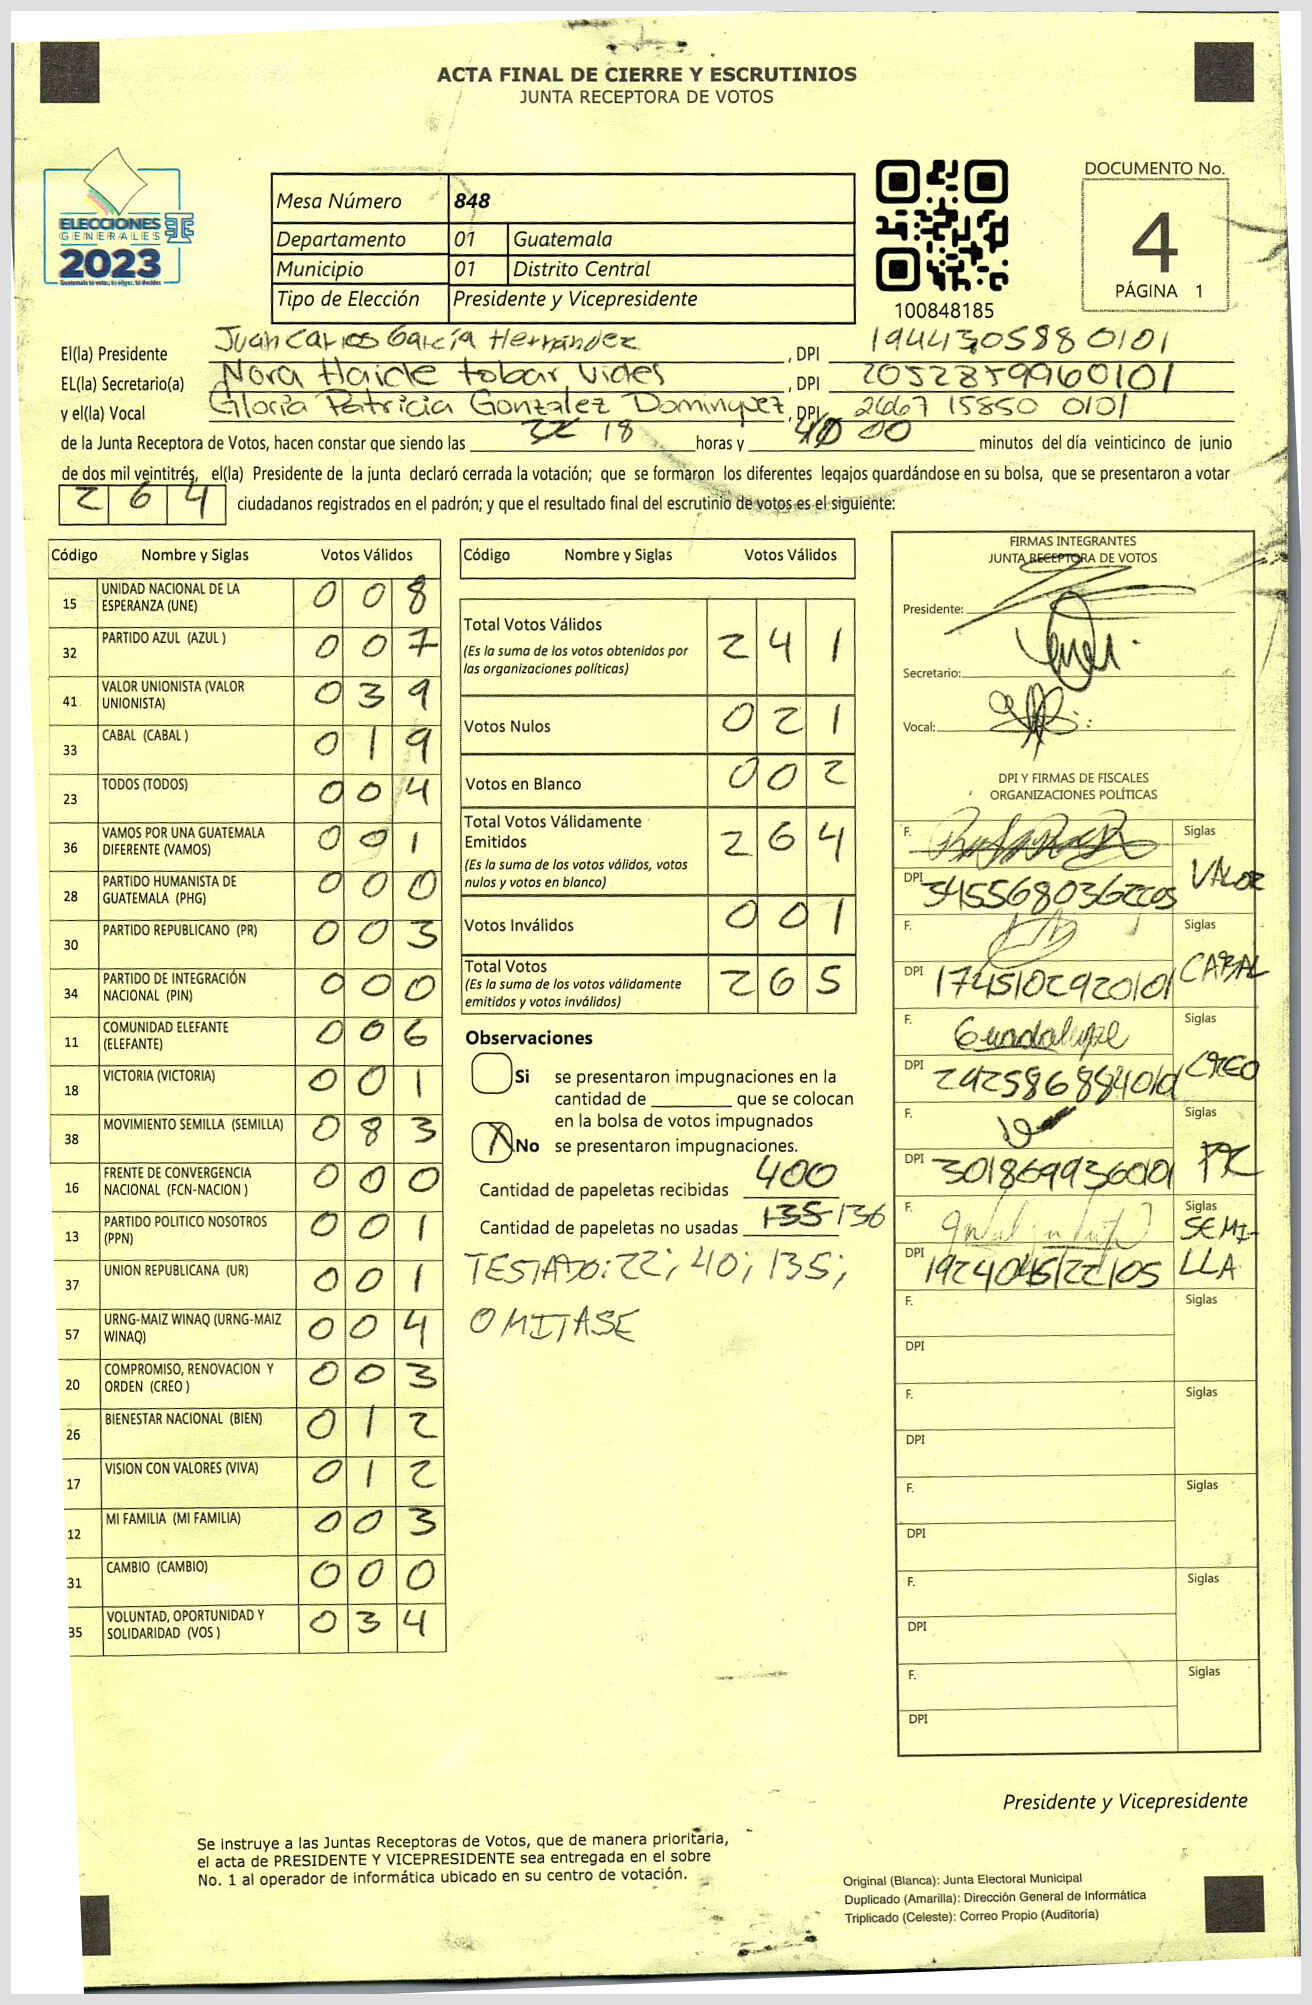 ACTA FINAL DE CIERRE Y ESCRUTINIOS
JUNTA RECEPTORA DE VOTOS
ELECCIONES
GENERALES
2023
Mesa Número 848
Departamento 01 Guatemala
Municipio 01 Distrito Central
Tipo de Elección Presidente y Vicepresidente
100848185
DOCUMENTO No.
4
PÁGINA 1
El(la) Presidente Juan Carlos García Hernández, DPI 1944305880101
EL(la) Secretario(a) Nora Haide tobar Vides, DPI
y el(la) Vocal Gloria Patricia Gonzalez Dominguez, DPI 2667 15850 0101
de la Junta Receptora de Votos, hacen constar que siendo las 18 horas y 00 minutos del día veinticinco de junio
de dos mil veintitrés, el(la) Presidente de la junta declaró cerrada la votación; que se formaron los diferentes legajos guardándose en su bolsa, que se presentaron a votar
264 ciudadanos registrados en el padrón; y que el resultado final del escrutinio de votos es el siguiente:
Código Nombre y Siglas Votos Válidos
15 UNIDAD NACIONAL DE LA ESPERANZA (UNE) 008
32 PARTIDO AZUL (AZUL ) 007
41 VALOR UNIONISTA (VALOR UNIONISTA) 039
33 CABAL (CABAL ) 019
23 TODOS (TODOS) 004
36 VAMOS POR UNA GUATEMALA DIFERENTE (VAMOS) 001
28 PARTIDO HUMANISTA DE GUATEMALA (PHG) 000
30 PARTIDO REPUBLICANO (PR) 003
34 PARTIDO DE INTEGRACIÓN NACIONAL (PIN) 000
11 COMUNIDAD ELEFANTE (ELEFANTE) 006
18 VICTORIA (VICTORIA) 001
38 MOVIMIENTO SEMILLA (SEMILLA) 083
16 FRENTE DE CONVERGENCIA NACIONAL (FCN-NACION ) 000
13 PARTIDO POLITICO NOSOTROS (PPN) 001
37 UNION REPUBLICANA (UR) 001
57 URNG-MAIZ WINAQ (URNG-MAIZ WINAQ) 004
20 COMPROMISO, RENOVACION Y ORDEN (CREO ) 003
26 BIENESTAR NACIONAL (BIEN) 012
17 VISION CON VALORES (VIVA) 012
12 MI FAMILIA (MI FAMILIA) 003
31 CAMBIO (CAMBIO) 000
35 VOLUNTAD, OPORTUNIDAD Y SOLIDARIDAD (VOS ) 034
Código Nombre y Siglas Votos Válidos
Total Votos Válidos 241
(Es la suma de los votos obtenidos por
las organizaciones políticas)
Votos Nulos 021
Votos en Blanco 002
Total Votos Válidamente
Emitidos 264
(Es la suma de los votos válidos, votos
nulos y votos en blanco)
Votos Inválidos 001
Total Votos 265
(Es la suma de los votos válidamente
emitidos y votos inválidos)
Observaciones
Si se presentaron impugnaciones en la
cantidad de ________ que se colocan
en la bolsa de votos impugnados
X No se presentaron impugnaciones.
Cantidad de papeletas recibidas 400
Cantidad de papeletas no usadas 135 136
TESTADO: 22; 40; 135;
OMITASE
FIRMAS INTEGRANTES
JUNTA RECEPTORA DE VOTOS
Presidente:
Secretario:
Vocal:
DPI Y FIRMAS DE FISCALES
ORGANIZACIONES POLÍTICAS
F. Siglas VALOR
DPI
F. Siglas CABAL
DPI 1745102920101
F. Guadalupe Siglas CREO
DPI
F. Siglas
DPI
F. Siglas SEMI-
DPI LLA
F. Siglas
DPI
F. Siglas
DPI
F. Siglas
DPI
F. Siglas
DPI
F. Siglas
DPI
Presidente y Vicepresidente
Se instruye a las Juntas Receptoras de Votos, que de manera prioritaria,
el acta de PRESIDENTE Y VICEPRESIDENTE sea entregada en el sobre
No. 1 al operador de informática ubicado en su centro de votación.
Original (Blanca): Junta Electoral Municipal
Duplicado (Amarilla): Dirección General de Informática
Triplicado (Celeste): Correo Propio (Auditoría)